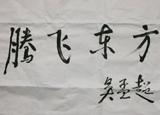 腾飞东方
吴孟超